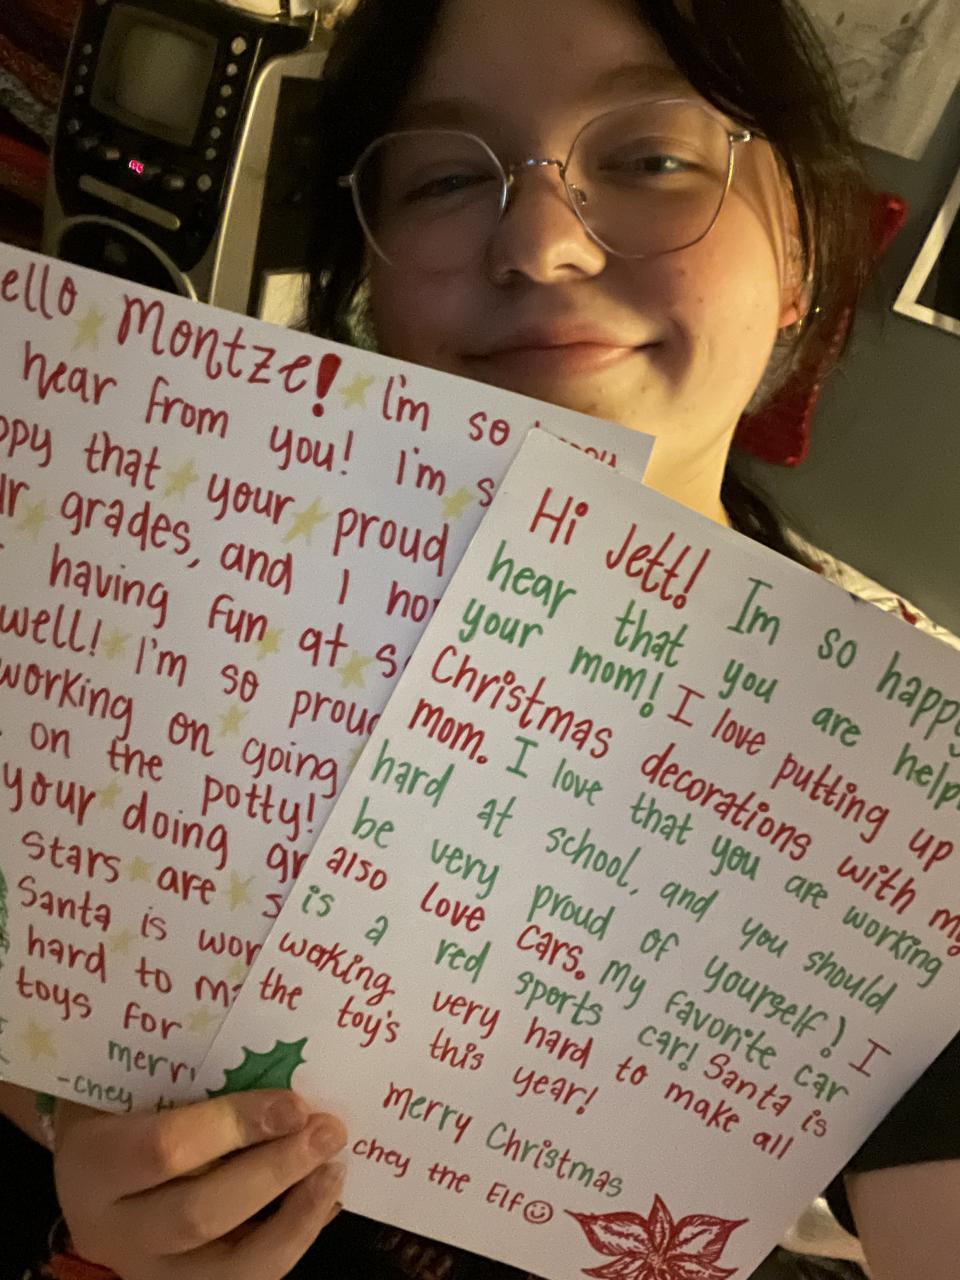 ello Montze! I'm so
hear from you! I'm s
ppy that your proud
ur grades, and I ho
having fun at s
well! I'm so proud
working on going
on the potty!
your doing gr
Stars are s
Santa is wor
hard to ma
toys for
merry
-chey th
Hi Jett! Im so happy
hear that you are help
your mom! I love putting up
Christmas decorations with my
mom. I love that you are working
hard at school, and you should
be very proud of yourself! I
also love cars. My favorite car
is a red sports car! Santa is
working very hard to make all
the toy's this year!
Merry Christmas
chey the Elf☺